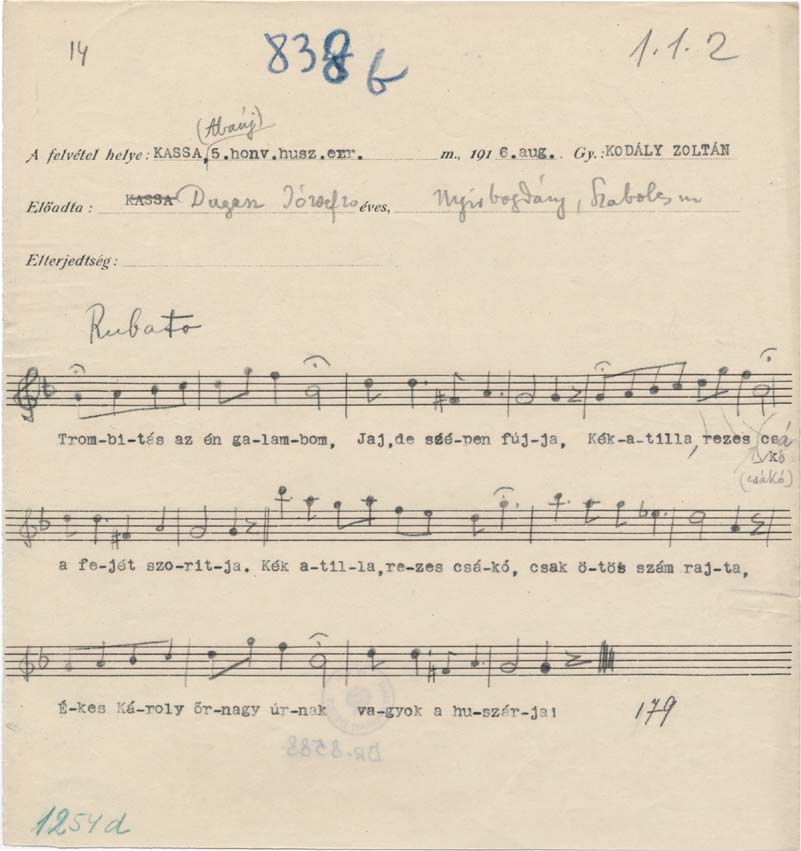 14 838 b 1.1.2
(Abaúj)
A felvétel helye: KASSA, 5.honv.husz.ezr. m., 1916.aug. Gy.: KODÁLY ZOLTÁN
Előadta: KASSA József éves, Nyírbogdány, Szabolcs m
Elterjedtség:
Rubato
Trom-bi-tás az én ga-lam-bom, Jaj,de szé-pen fúj-ja, Kék-a-tilla, rezes csá
kó
(csákó)
a fe-jét szo-rit-ja. Kék a-til-la,re-zes csá-kó, csak ö-tös szám raj-ta,
É-kes Ká-roly őr-nagy úr-nak va-gyok a hu-szár-ja! 179
Br.-8588
1254d